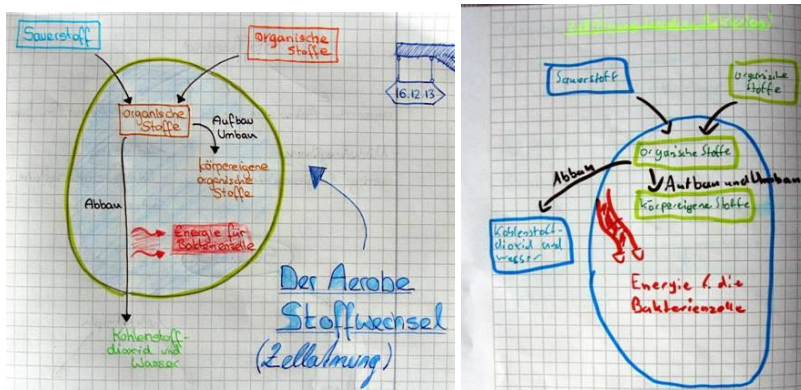 Sauerstoff
organische
Stoffe
16.12.13
organische
Stoffe
Aufbau
Umbau
körpereigene
organische
Stoffe
Abbau
Energie für
Bakterienzelle
Der Aerobe
Stoffwechsel
(Zellatmung)
Kohlenstoff-
dioxid und
Wasser
Sauerstoff
organische
Stoffe
organische Stoffe
Abbau
Aufbau und Umbau
körpereigene Stoffe
Kohlenstoff-
dioxid und
wasser
Energie f. die
Bakterienzelle